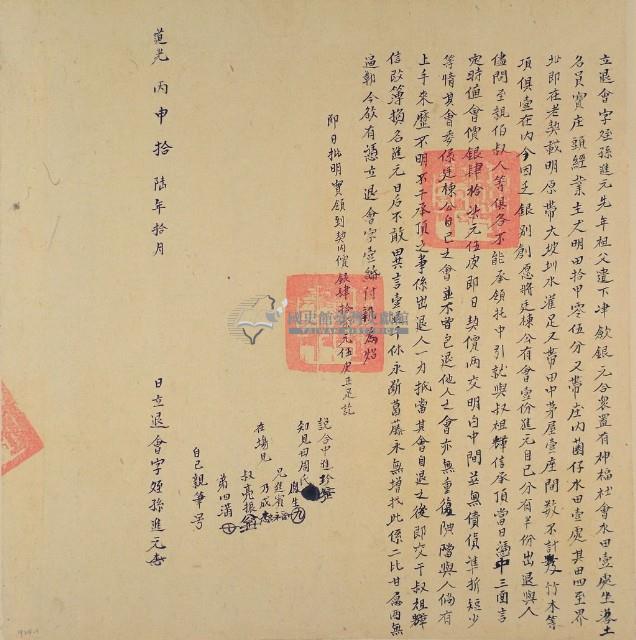 立退會字姪孫進元先年祖父遺下津飲銀元合衆置有神福社會水田壹處坐落土
名員寶庄頭經業主丈明田拾甲零伍分又帶庄內菌仔水田壹處其田四至界
址即在老契載明原帶大坡圳水灌足又帶田中茅屋壹座間數不計及竹木等
項俱壹在內今因乏銀別創愿將廷棟公有會壹份進元自己分有半份出退與人
儘問至親伯叔人等俱各不能承領托中引就與叔祖輝信承頂當日憑中三面言
定時值會價銀肆拾柒元伍皮即日契價兩交明白中間並無債貨準折短少
等情其會委係廷棟公自己之會並不曾包退他人之會亦無重復典掛與人倘有
上手來歷不明不干承頂之事係出退人一力抵當其會自退之後即交于叔祖輝
信改簿換名進元日后不敢異言壹退千休永斷葛藤永無增找此係二比甘愿两無
逼勒今欲有憑立退會字壹紙付執為炤
即日批明實領到契內價銀肆拾柒元伍皮正足訖
說合中進珍
知見母周氏
兄進賓
乃成
在場見
叔亮振
弟四滿
自己親筆
道光丙申拾陸年拾月 日立退會字姪孫進元
國史館臺灣文獻館
TAIWAN HISTORICA